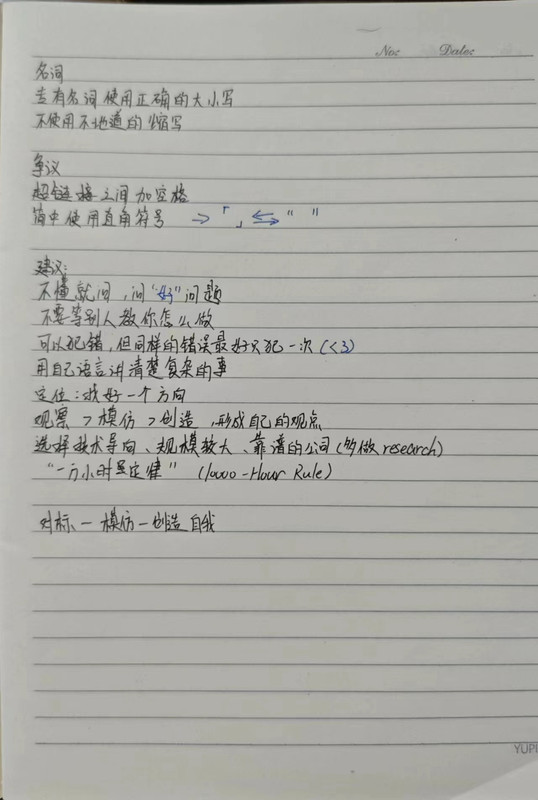 No:    Date:
名词
专有名词使用正确的大小写
不使用不地道的缩写
争议
超链接之间加空格
简中使用直角符号 → 「」 ⇆ “ ”
建议:
不懂就问,问“好”问题
不要等别人教你怎么做
可以犯错,但同样的错误最好只犯一次(<3)
用自己语言讲清楚复杂的事
定位:找好一个方向
观察 > 模仿 > 创造,形成自己的观点
选择技术导向、规模较大、靠谱的公司(多做research)
“一万小时定律” (1000-Hour Rule)
对标 — 模仿 — 创造自我
YUPI